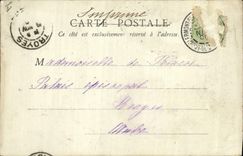 Imprimé
CARTE POSTALE
Ce côté est exclusivement réservé à l'adresse
TROYES
Mademoiselle de
Palais épiscopal
Troyes
Aube